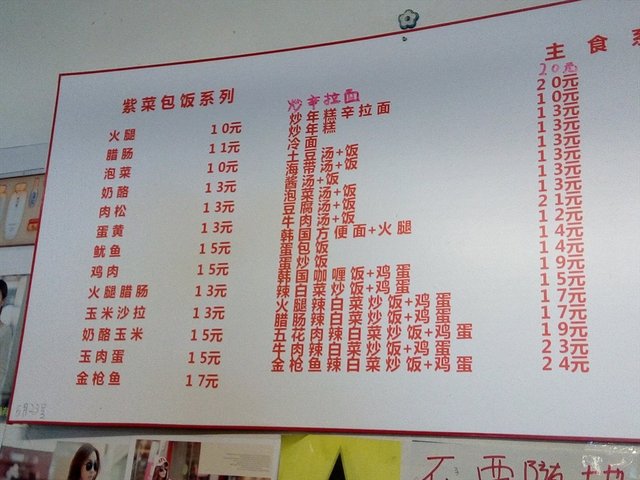 紫菜包饭系列
火腿 10元
腊肠 11元
泡菜 10元
奶酪 13元
肉松 13元
蛋黄 13元
鱿鱼 15元
鸡肉 15元
火腿腊肠 13元
玉米沙拉 13元
奶酪玉米 15元
玉肉蛋 15元
金枪鱼 17元
主食系
炒辛拉面 20元
炒年糕辛拉面 20元
炒年糕 10元
冷面 13元
土豆汤+饭 13元
海带汤+饭 13元
酱汤+饭 13元
泡菜汤+饭 13元
豆腐汤+饭 13元
牛肉汤+饭 21元
韩国方便面+火腿 12元
蛋包饭 14元
蛋炒饭 14元
韩国咖喱饭+鸡蛋 19元
辣白菜炒饭+鸡蛋 15元
火腿辣白菜炒饭+鸡蛋 17元
腊肠辣白菜炒饭+鸡蛋 17元
五花肉辣白菜炒饭+鸡蛋 19元
牛肉辣白菜炒饭+鸡蛋 23元
金枪鱼辣白菜炒饭+鸡蛋 24元
不要随地